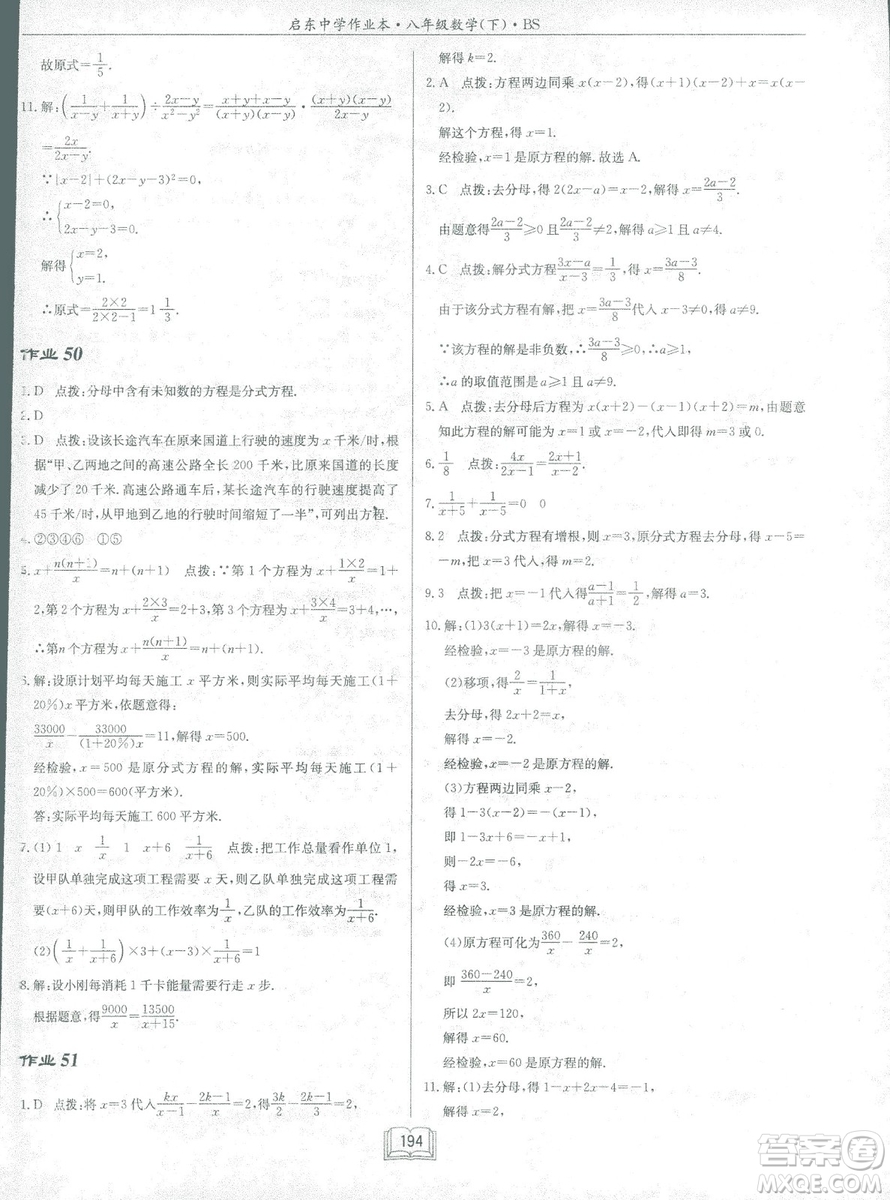 启东中学作业本·八年级数学(下)·BS
故原式=1/5.
11.解:(1/(x-y)+1/(x+y))÷(2x-y)/(x²-y²)=(x+y+x-y)/((x+y)(x-y))·((x+y)(x-y))/(2x-y)
=2x/(2x-y).
∵|x-2|+(2x-y-3)²=0,
∴{x-2=0,
2x-y-3=0.
解得{x=2,
y=1.
∴原式=(2×2)/(2×2-1)=1 1/3.
作业 50
1.D 点拨:分母中含有未知数的方程是分式方程.
2.D
3.D 点拨:设该长途汽车在原来国道上行驶的速度为 x 千米/时,根
据“甲、乙两地之间的高速公路全长 200 千米,比原来国道的长度
减少了 20 千米.高速公路通车后,某长途汽车的行驶速度提高了
45 千米/时,从甲地到乙地的行驶时间缩短了一半”,可列出方程.
4.②③④⑥ ①⑤
5.x+n(n+1)/x=n+(n+1) 点拨:∵第 1 个方程为 x+(1×2)/x=1+
2,第 2 个方程为 x+(2×3)/x=2+3,第 3 个方程为 x+(3×4)/x=3+4,…,
∴第 n 个方程为 x+n(n+1)/x=n+(n+1).
6.解:设原计划平均每天施工 x 平方米,则实际平均每天施工(1+
20%)x 平方米,依题意得:
33000/x-33000/((1+20%)x)=11,解得 x=500.
经检验,x=500 是原分式方程的解,实际平均每天施工(1+
20%)×500=600(平方米).
答:实际平均每天施工 600 平方米.
7.(1)1 x 1/x 1 x+6 1/(x+6) 点拨:把工作总量看作单位 1,
设甲队单独完成这项工程需要 x 天,则乙队单独完成这项工程需要
(x+6)天,则甲队的工作效率为1/x,乙队的工作效率为1/(x+6).
(2)(1/x+1/(x+6))×3+(x-3)×1/(x+6)=1
8.解:设小刚每消耗 1 千卡能量需要行走 x 步.
根据题意,得9000/x=13500/(x+15).
作业 51
1.D 点拨:将 x=3 代入kx/(x-1)-(2k-1)/x=2,得3k/2-(2k-1)/3=2,
解得 k=2.
2.A 点拨:方程两边同乘 x(x-2),得(x+1)(x-2)+x=x(x-
2).
解这个方程,得 x=1.
经检验,x=1 是原方程的解.故选 A.
3.C 点拨:去分母,得 2(2x-a)=x-2,解得 x=(2a-2)/3.
由题意得(2a-2)/3≥0 且(2a-2)/3≠2,解得 a≥1 且 a≠4.
4.C 点拨:解分式方程(3x-a)/(x-3)=1/3,得 x=(3a-3)/8.
由于该分式方程有解,把 x=(3a-3)/8代入 x-3≠0,得 a≠9.
∵该方程的解是非负数,∴(3a-3)/8≥0,解得 a≥1,
∴a 的取值范围是 a≥1 且 a≠9.
5.A 点拨:去分母后方程为 x(x+2)-(x-1)(x+2)=m,由题意
知此方程的解可能为 x=1 或 x=-2,代入方程,得 m=3 或 0.
6.1/8 点拨:4x/(x-2)=(2x+1)/(x-2).
7.1/(x+5)+1/(x-5)=0 0
8.2 点拨:分式方程有增根,则 x=3,原分式方程去分母得 x-5=
-m,把 x=3 代入,得 m=2.
9.3 点拨:把 x=-1 代入得(a-1)/(a+1)=1/2,解得 a=3.
10.解:(1)3(x+1)=2x,解得 x=-3.
经检验,x=-3 是原方程的解.
(2)移项,得2/x=1/(1+x),
去分母,得 2x+2=x,
解得 x=-2.
经检验,x=-2 是原方程的解.
(3)方程两边同乘 x-2,
得 1-3(x-2)=-(x-1),
即 1-3x+6=-x+1,
则-2x=-6,
得 x=3.
经检验,x=3 是原方程的解.
(4)原方程可化为360/x-240/x=2,
即(360-240)/x=2,
所以 2x=120,
解得 x=60.
经检验,x=60 是原方程的解.
11.解:(1)去分母,得 1-x-4(x-2)=-1,
解得 x=2,
194
答案圈
MXQE.COM